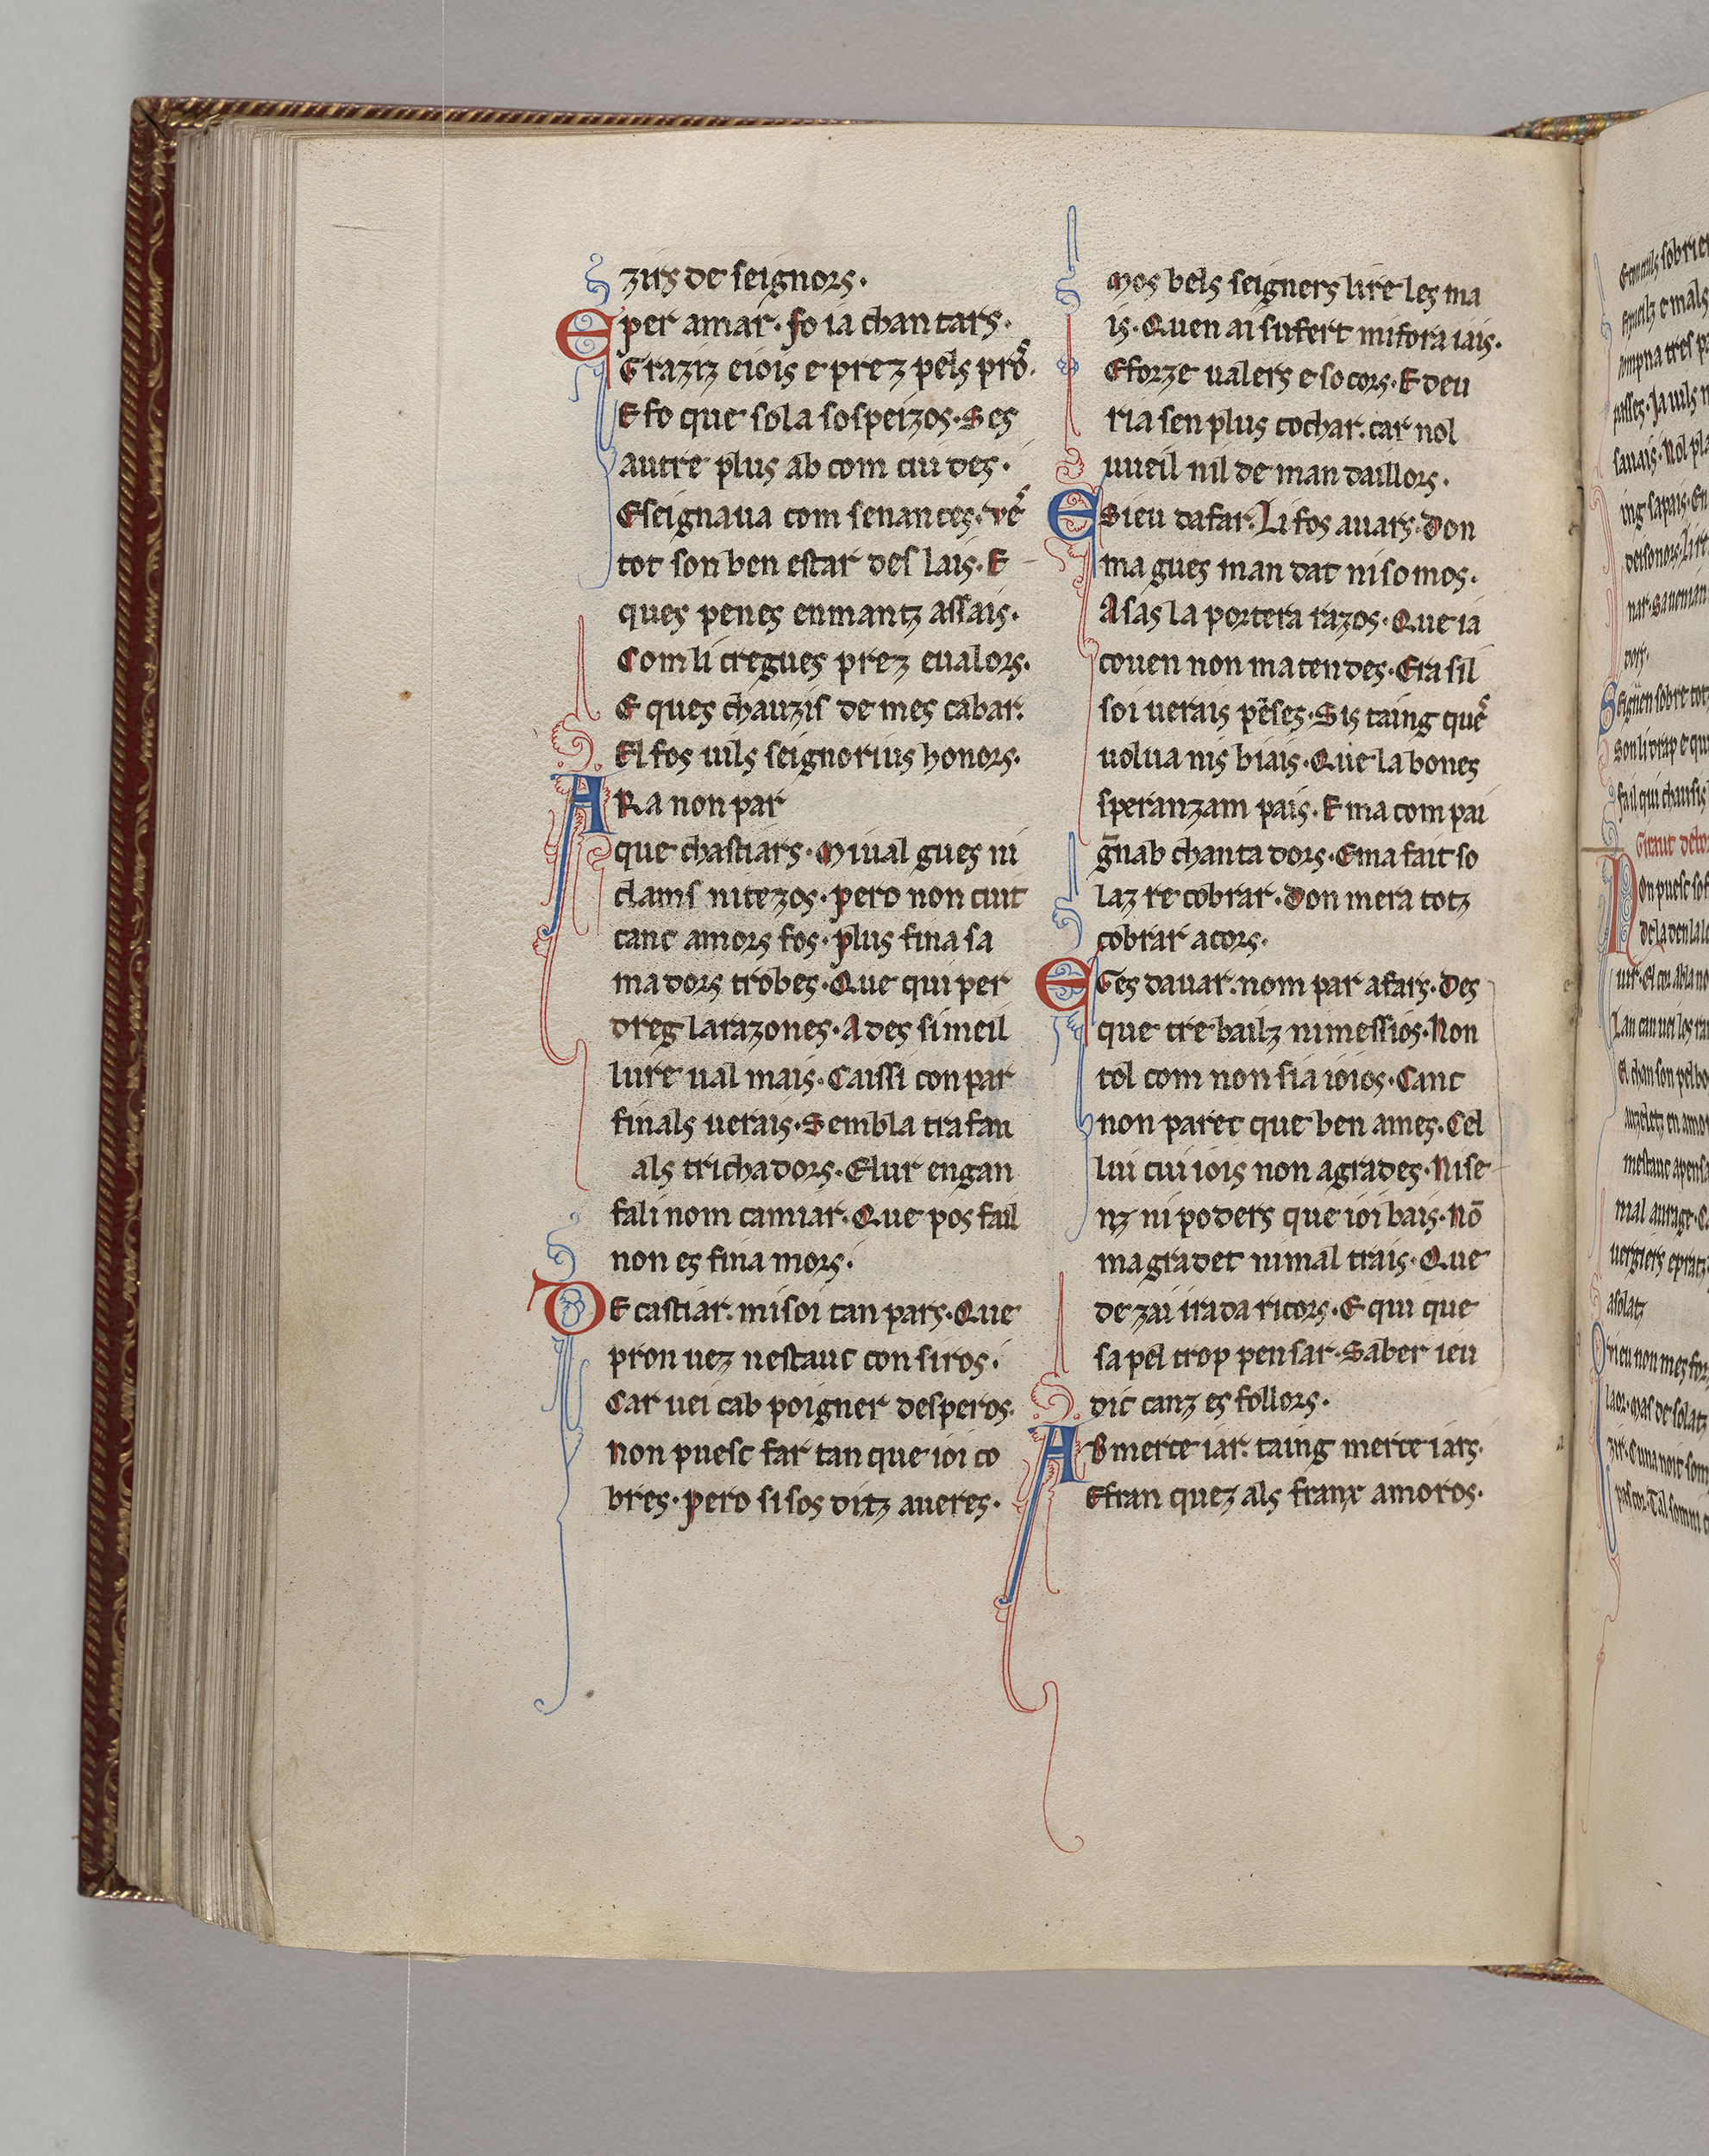 zirs de seignors.
E per amar. fo ia chantars.
Graziz eiois e prez pels pros.
E so que sola sospeizos. Ses
autre plus ab com cui des.
Eseignaua com senances. ue
tot son ben estar des lais. E
ques penes enmantz assais.
Com li cregues prez eualors.
E ques chauzis de mes cabar.
El fos uils seignorius honors.
ARa non par
que chastiars. Miual gues ni
clams nitezos. pero non cuit
canc amors fos. plus fina sa
madors trobes. Que qui per
dreg larazones. Ades simeil
lure ual mais. Caissi con par
finals uerais. Sembla trafau
als trichadors. Elur engan
fali nom camiar. Que pos fail
non es fina mors.
DE castiar. misoi tan pars. Que
pron uez nestauc consiros.
Car uei cab poigner desperos.
Non puesc far tan que ioi co
bres. pero si sos ditz aueres.
Mos bels seigners lire les ma
is. Quen ai sufert mifora iais.
Eforze ualers e socors. E deu
ria sen plus cochar. car nol
uueil nil de man daillors.
ESieu dafar. Li fos auars. Don
ma gues man dat ni so mos.
Asas la portera razos. Que ia
couen non matendes. Era sil
soi uerais pēses. Sis taing que
uolua nis biais. Que la bones
speranzam pais. E ma com pai
gnab chanta dors. Ema fait so
laz re cobrar. Don mera totz
cobrar acors.
EGes dauar. nom par afars. Des
que tre bailz nimessios. Non
tol com non sia ioios. Canc
non paret que ben ames. Cel
lui cui iois non agrades. Nise
nz ni poders que ioi bais. Nō
magradet nimal trais. Que
de zai irada ricors. E qui que
sa pel trop pensar. Saber ieu
dic canz es follors.
AB merce iar. taing merce iars.
Efran quez als franx amoros.